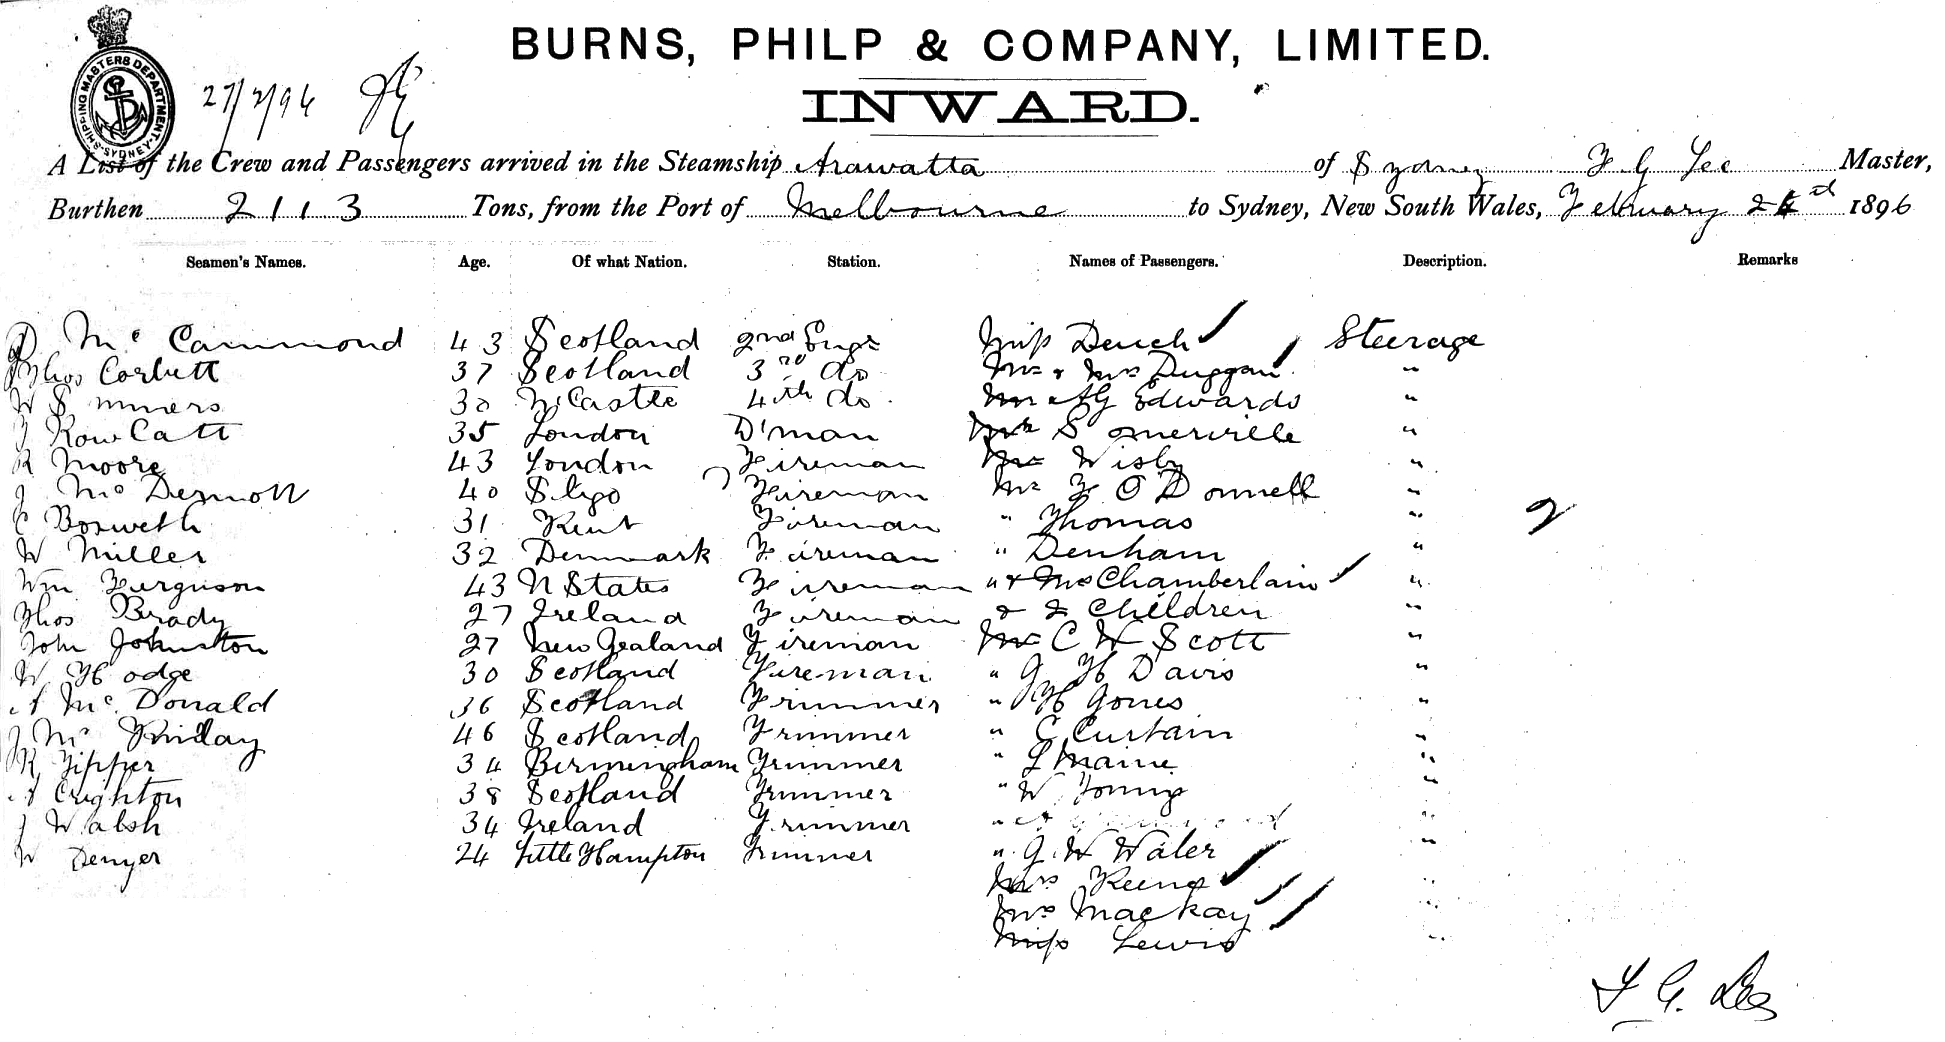 BURNS, PHILP & COMPANY, LIMITED.
INWARD.
SHIPPING MASTERS DEPARTMENT. SYDNEY
27/2/96
A List of the Crew and Passengers arrived in the Steamship Arawatta of Sydney F G Lee Master,
Burthen 2113 Tons, from the Port of Melbourne to Sydney, New South Wales, February 1896
Seamen's Names. Age. Of what Nation. Station. Names of Passengers. Description. Remarks
D McCammond 43 Scotland 2nd Engr Miss Deuch Steerage
Thos Corbett 37 Scotland 3rd do Mr & Mrs Duggan "
W Summers 30 N'Castle 4th do Edwards "
J RowCatt 35 London D'man Somerville "
R Moore 43 London Fireman Mr Wisby "
J McDermott 40 Sligo Fireman Mr F O'Donnell "
C Boxweth 31 Kent Fireman " Thomas "
W Miller 32 Denmark Fireman " Denham "
Wm Ferguson 43 U States Fireman " & Mrs Chamberlain "
Thos Brady 27 Ireland Fireman & 2 Children "
John Johnston 27 New Zealand Fireman Mr C W Scott "
W Hodge 30 Scotland Fireman " G H Davis "
A McDonald 36 Scotland Trimmer " H Jones "
J McKinlay 46 Scotland Trimmer " C Curtain "
R Tipper 34 Birmingham Trimmer " L Maine "
A Crighton 38 Scotland Trimmer " W Young "
J Walsh 34 Ireland Trimmer " A "
W Denyer 24 Little Hampton Trimmer " G W Waler "
Mrs Keene "
Mrs Mackay "
Miss Lewis "
2
F G. Lee